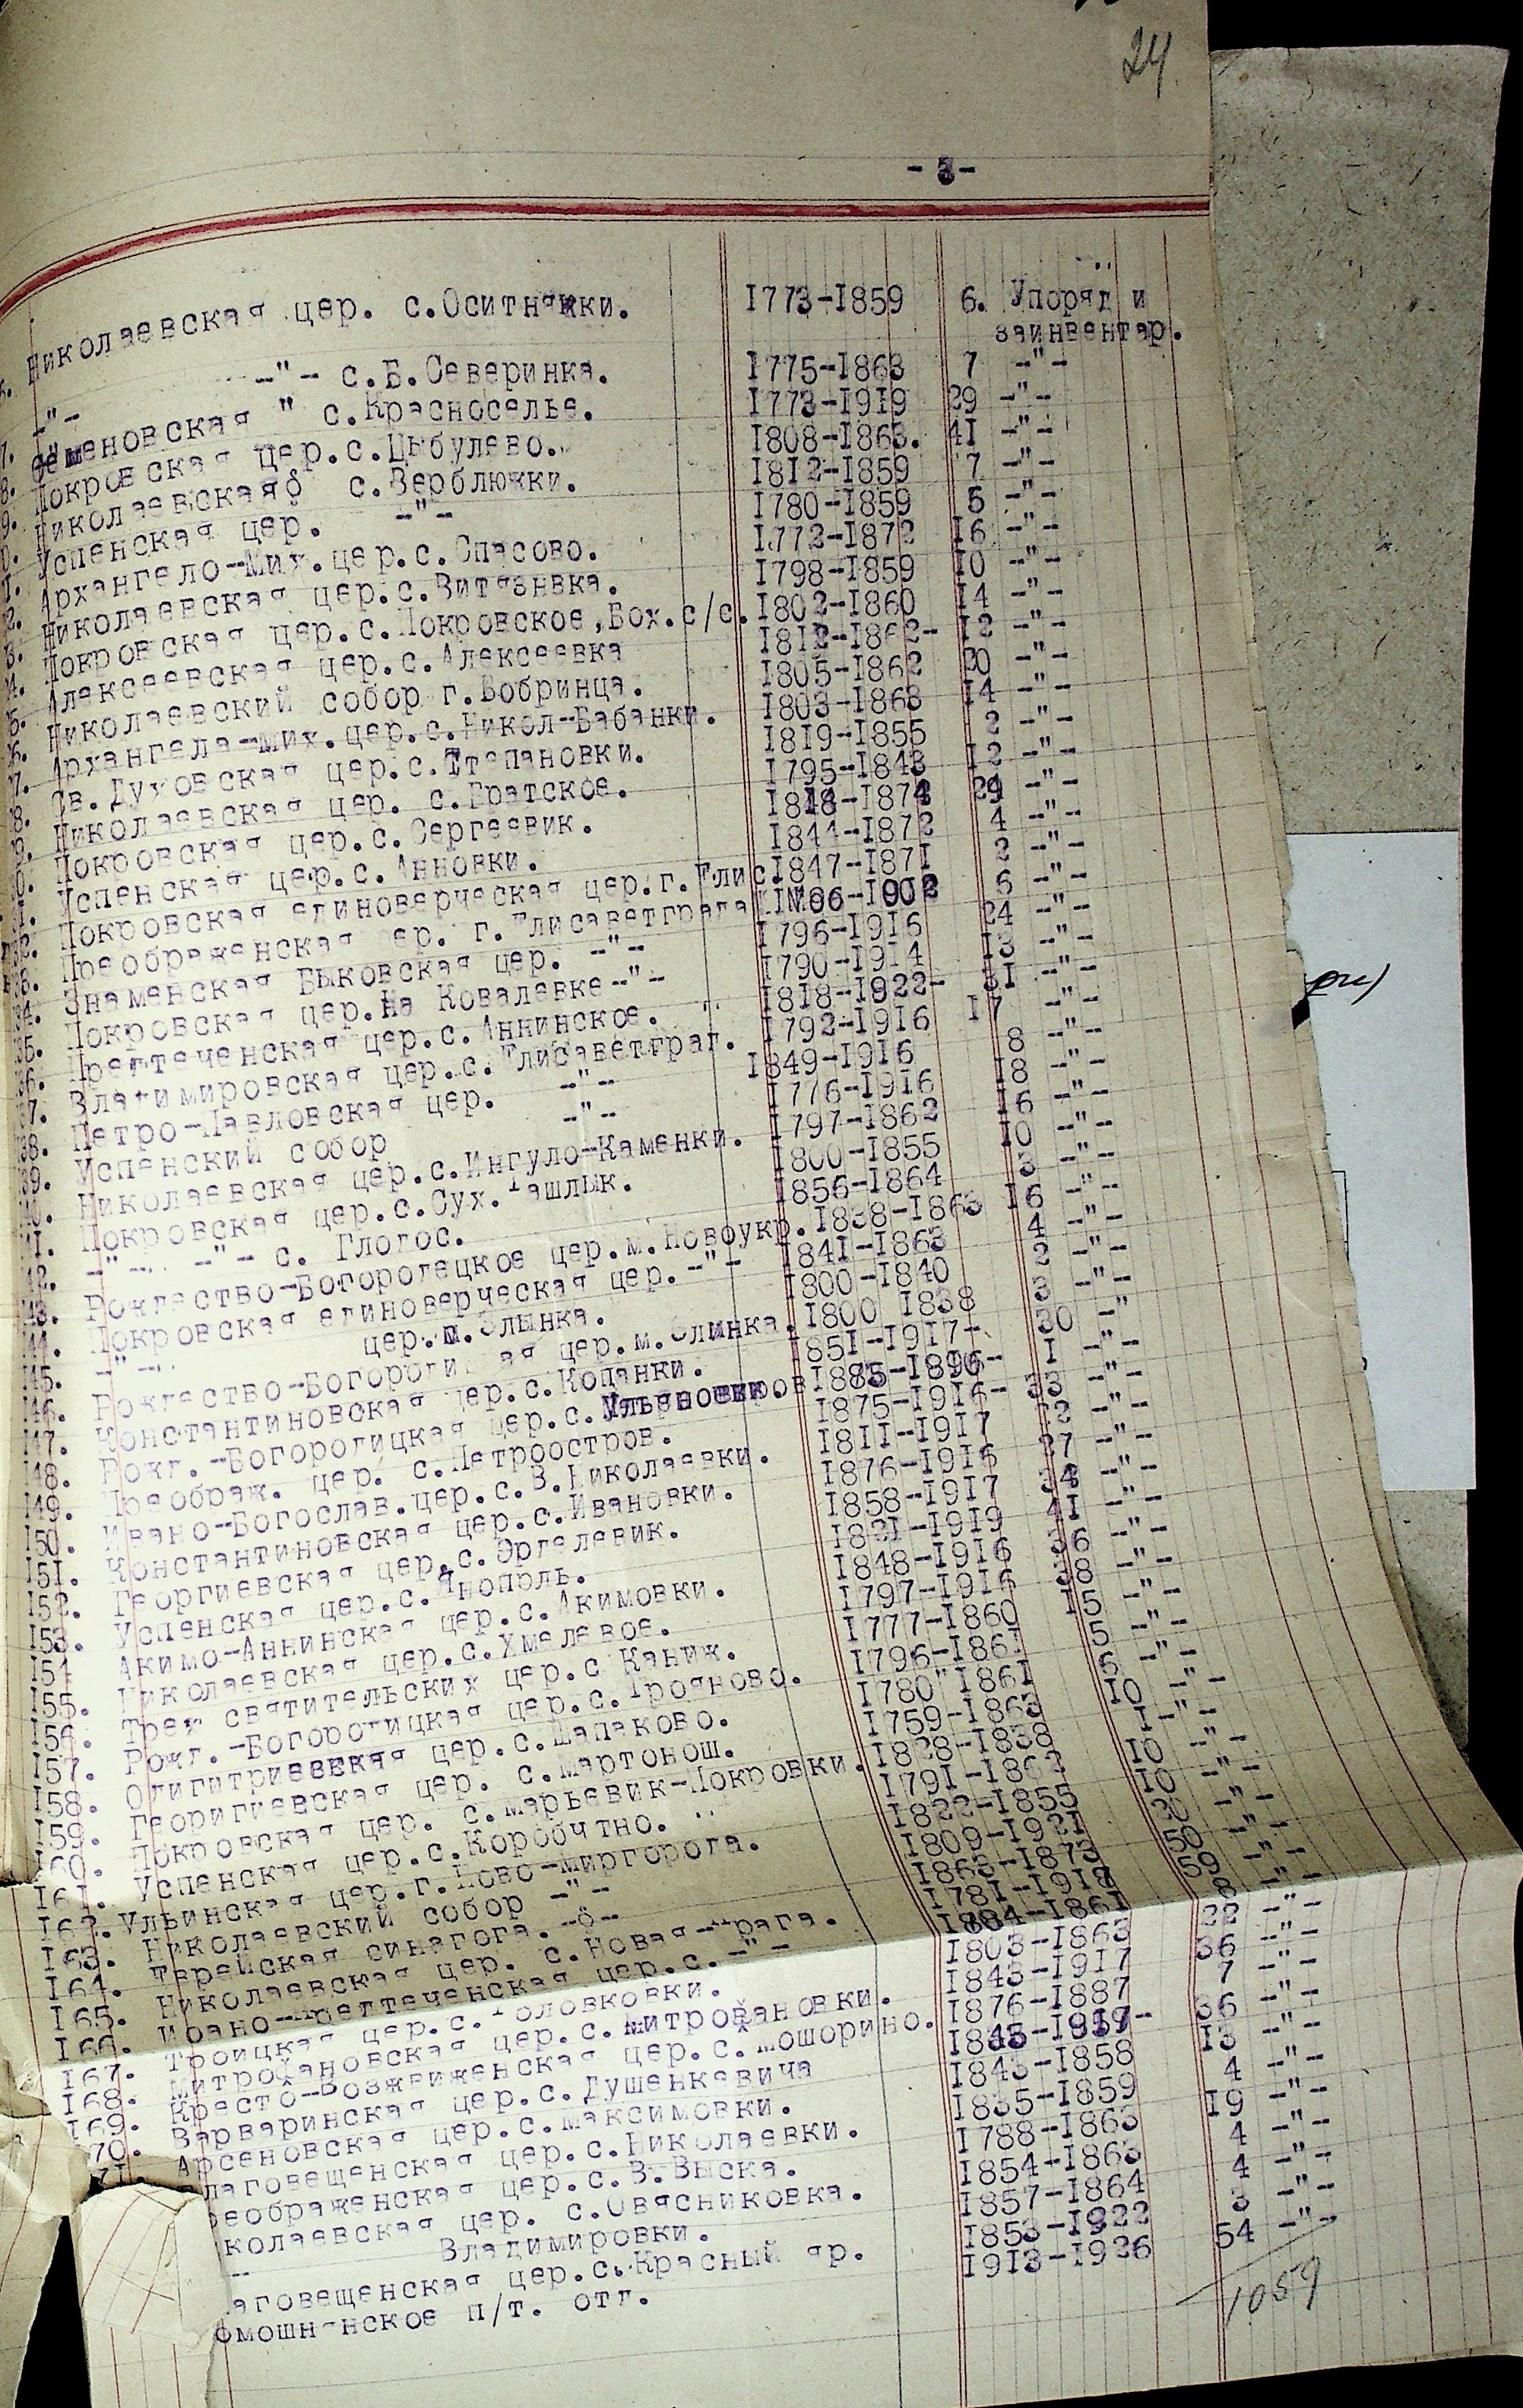 24
- 3 -
Николаевская цер. с.Оситняжки. 1773-1859 6. Упоряд и
заинвентар.
-"- -"- с.Б.Северинка. 1775-1863 7 -"-
Семеновская " с.Красноселье. 1773-1919 29 -"-
Покровская цер.с.Цыбулево. 1808-1863. 41 -"-
Николаевская с.Верблюжки. 1812-1859 7 -"-
Успенская цер. -"- 1780-1859 5 -"-
Архангело-Мих.цер.с.Спасово. 1772-1872 16 -"-
Николаевская цер.с.Витязевка. 1798-1859 10 -"-
Покровская цер.с.Покровское,Бох.с/с. 1802-1860 14 -"-
Алексеевская цер.с.Алексеевка 1812-1862- 12 -"-
Николаевский собор г.Бобринца. 1805-1862 20 -"-
Архангела-Мих.цер.с.Никол-Бабанки. 1803-1863 14 -"-
Св.Духовская цер.с.Степановки. 1819-1855 2 -"-
Николаевская цер. с.Братское. 1795-1843 12 -"-
Покровская цер.с.Сергеевик. 29 -"-
Успенская цер.с.Анновки. 1844-1872 4 -"-
Покровская единоверческая цер.г.Елис. 1847-1871 2 -"-
Преображенская цер. г.Елисаветграда 6 -"-
Знаменская Быковская цер. -"- 1796-1916 24 -"-
Покровская цер.на Ковалевке-"- 1790-1914 13 -"-
Предтеченская цер.с.Аннинское. 1818-1922- 31 -"-
Владимировская цер.с.Елисаветград. 1792-1916 17 -"-
Петро-Павловская цер. -"- 1849-1916 8 -"-
Успенский собор -"- 1776-1916 18 -"-
Николаевская цер.с.Ингуло-Каменки. 1797-1862 16 -"-
Покровская цер.с.Сух.Ташлык. 1800-1855 10 -"-
142. -"- -"- с. Глодос. 1856-1864 3 -"-
143. Рождество-Богородецкое цер.м.Новоукр. 1838-1863 16 -"-
144. Покровская единоверческая цер.-"- 1841-1863 4 -"-
145. -"- цер.м.Злынка. 1800-1840 2 -"-
146. Рождество-Богородицкая цер.м.Злинка. 1800 1838 3 -"-
147. Константиновская цер.с.Копанки. 1851-1917- 30 -"
148. Рожд.-Богородицкая цер.с. 1 -"-
149. Преображ. цер. с.Петроостров. 1875-1916- 33 -"-
150. Ивано-Богослав.цер.с.В.Николаевки. 1811-1917 32 -"-
151. Константиновская цер.с.Ивановки. 1876-1916 27 -"-
152. Георгиевская цер.с.Эрделевик. 1858-1917 34 -"-
153. Успенская цер.с.Янополь. 1821-1919 41 -"-
154 Акимо-Аннинская цер.с.Акимовки. 1848-1916 36 -"-
155. Николаевская цер.с.Хмелевое. 1797-1916 38 -"-
156. Трех святительских цер.с Каниж. 1777-1860 15 -"-
157. Рожд.-Богородицкая цер.с.Трояново. 1796-1861 5 -"-
158. Одигитриевская цер.с.Шапаково. 1780"1861 6 -"-
159. Георигиевская цер. с.Мартонош. 1759-1863 10 -"-
160. Покровская цер. с.Марьевик-Покровки. 1828-1838 1 -"-
161. Успенская цер.с.Коробчтно. 1791-1863 10 -"-
162. Ульинская цер.г.Ново-Миргорода. 1822-1855 10 -"-
163. Николаевский собор -"- 1809-1921 20 -"-
164. Еврейская синагога. -"- 1863-1873 59 -"-
165. Николаевская цер. с.Новая-Прага. 1781-1918
166. Ивано-Предтеченская цер.с.-"- 1804-1861 8 -"-
167. Троицкая цер.с.Головковки. 1803-1863 22 -"-
168. Митрофановская цер.с.Митрофановки. 1843-1917 36 -"-
169. Кресто-Возжвиженская цер.с.Мошорино. 1876-1887 7 -"-
170. Варваринская цер.с.Душенкевича 36 -"-
171. Арсеновская цер.с.Максимовки. 1843-1858 13 -"-
лаговещенская цер.с.Николаевки. 1835-1859 4 -"-
реображенская цер.с.В.Выска. 1788-1863 19 -"-
колаевская цер. с.Овясниковка. 1854-1863 4 -"-
-- Владимировки. 1857-1864 4 -"-
аговещенская цер.с.Красный яр. 1853-1922 3 -"-
омошнянское п/т. отд. 1913-1926 54 -"-
1059